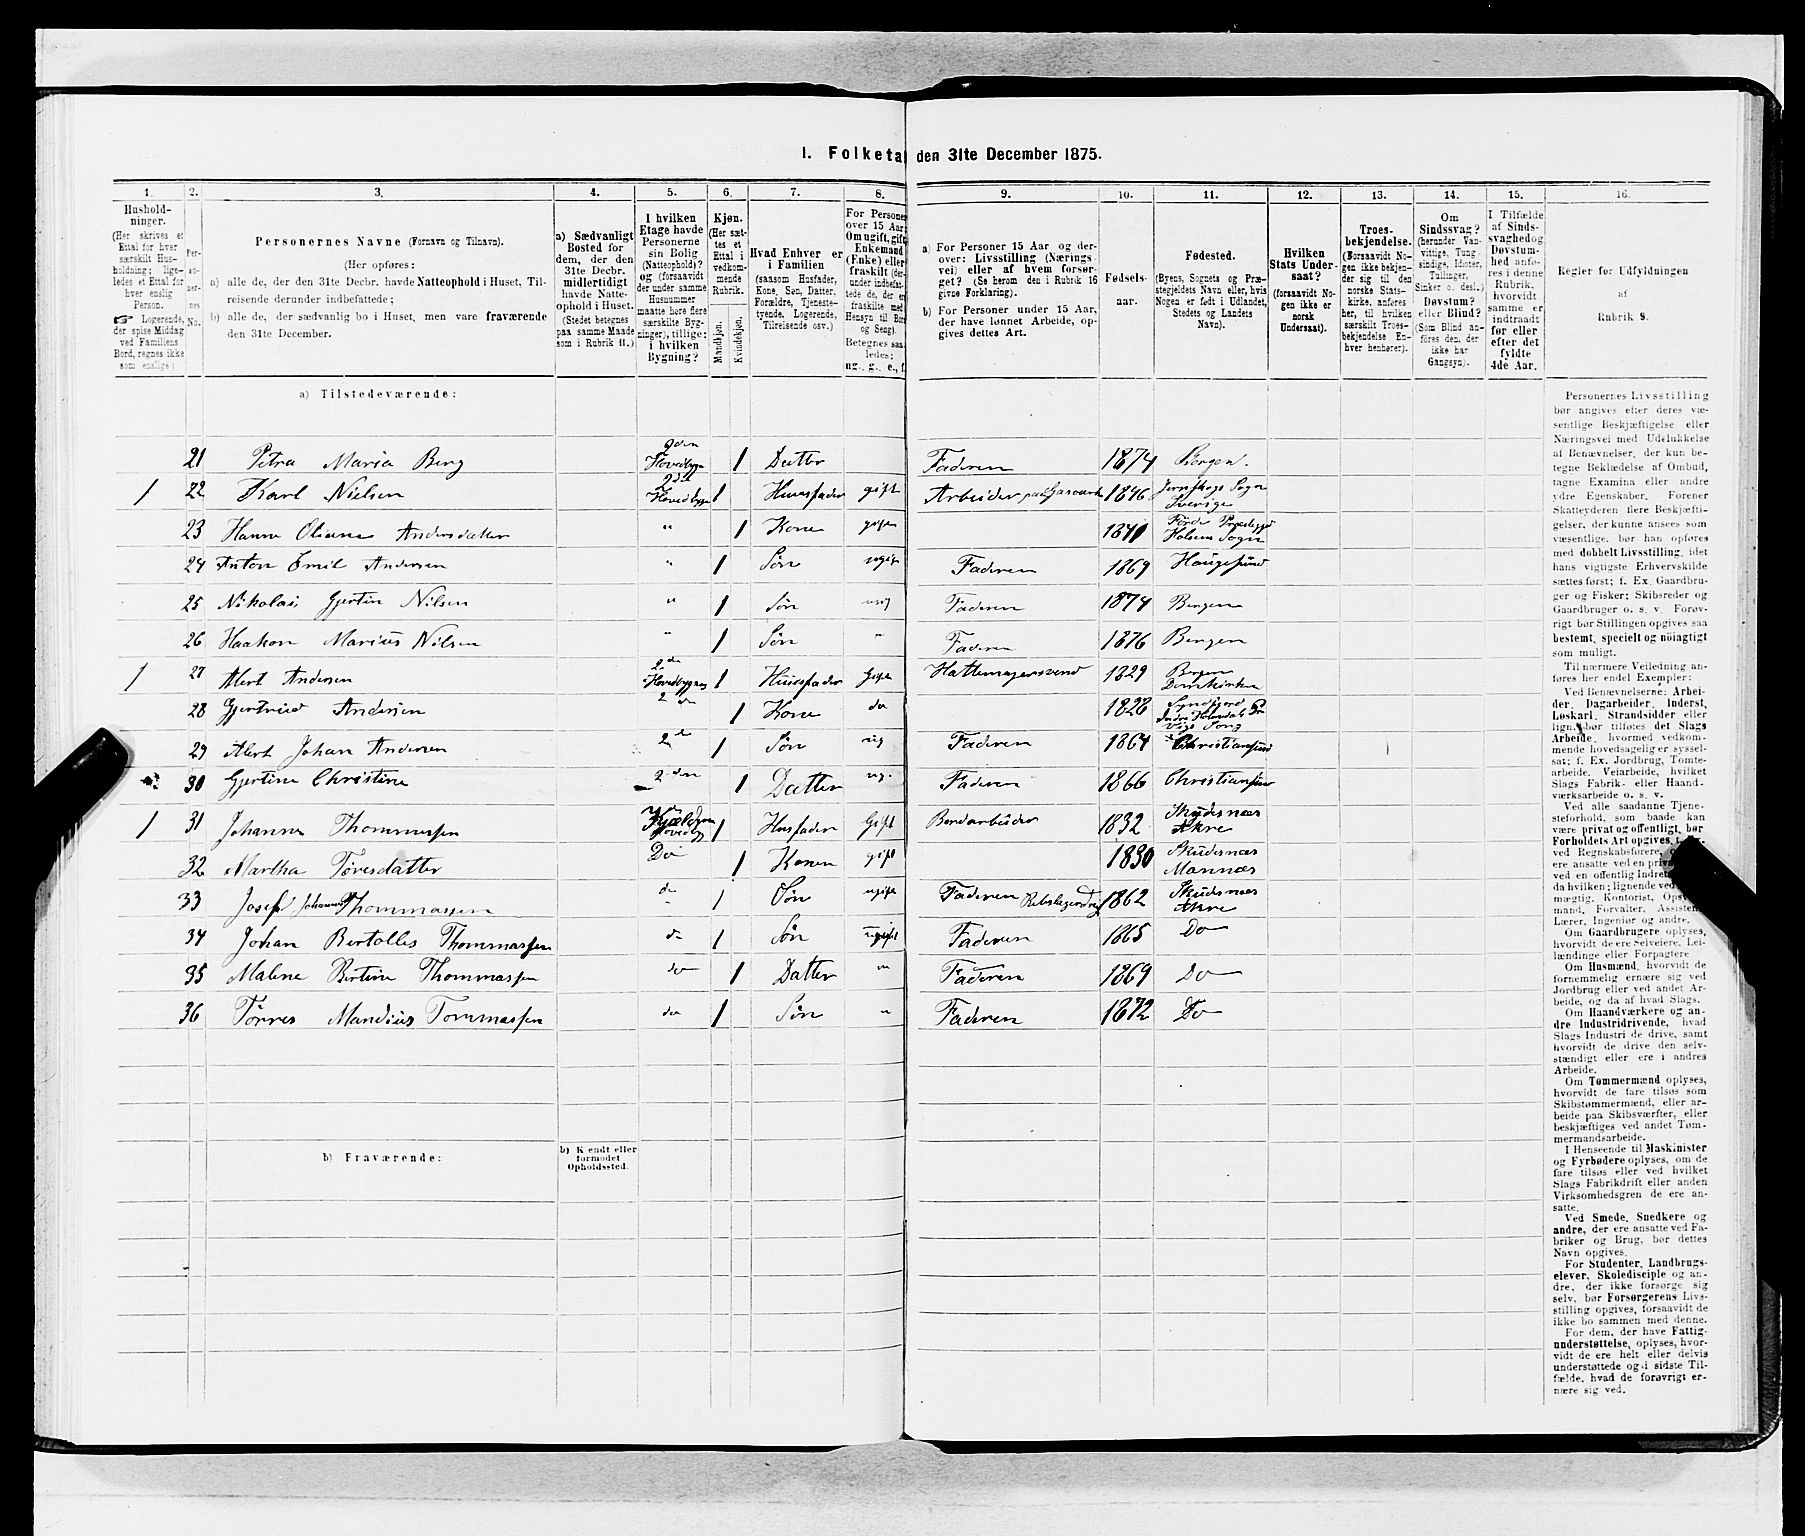 1. Folketal den 31te December 1875.
1. 2. 3. 4. 5. 6. 7. 8. 9. 10. 11. 12. 13. 14. 15. 16.
Hushold-
ninger.
(Her skrives et
Ettal for hver
særskilt Hus-
holdning; lige-
ledes et Ettal for
hver enslig
Person.
☞ Logerende,
der spise Middag
ved Familiens
Bord, regnes ikke
som enslige:
Per-
so-
ner-
nes
No.
Personernes Navne (Fornavn og Tilnavn).
(Her opføres:
a) alle de, der den 31te Decbr. havde Natteophold i Huset, Til-
reisende derunder indbefattede;
b) alle de, der sædvanlig bo i Huset, men vare fraværende
den 31te December.
a) Sædvanligt
Bosted for
dem, der den
31te Decbr.
midlertidigt
havde Natte-
ophold i Huset.
(Stedet betegnes
paa samme Maade
som i Rubrik 11.)
I hvilken
Etage havde
Personerne
sin Bolig
(Natteophold)?
og (forsaavidt
der under samme
Husnummer
maatte høre flere
særskilte Byg-
ninger), tillige:
i hvilken
Bygning?
Kjøn.
(Her sæt-
tes et
Ettal i
vedkom-
mende
Rubrik.
Mandkjøn.
Kvindekjøn.
Hvad Enhver er
i Familien
(saasom Husfader,
Kone, Søn, Datter,
Forældre, Tjeneste-
tyende, Logerende,
Tilreisende osv.)
For Personer
over 15 Aar:
Om ugift, gift,
Enkemand
(Enke) eller
fraskilt (der-
under indbefat-
tede de, der er
fraskilte med
Hensyn til Bord
og Seng).
Betegnes saa-
ledes:
ug., g., e., f.
a) For Personer 15 Aar og der-
over: Livsstilling (Nærings-
vei) eller af hvem forsør-
get? (Se herom den i Rubrik 16
givne Forklaring).
b) For Personer under 15 Aar,
der have lønnet Arbeide, op-
gives dettes Art.
Fødsels-
aar.
Fødested.
(Byens, Sognets og Præ-
stegjeldets Navn eller, hvis
Nogen er født i Udlandet,
Stedets og Landets
Navn).
Hvilken
Stats Under-
saat?
(forsaavidt No-
gen ikke er
norsk
Undersaat).
Troes-
bekjendelse.
(Forsaavidt No-
gen ikke bekjen-
der sig til den
norske Stats-
kirke, anføres
her, til hvilken
særskilt Troes-
bekjendelse En-
hver henhører).
Om
Sindssvag?
(herunder Van-
vittige, Tung-
sindige, Idioter,
Tullinger,
Sinker o. desl.)
Døvstum?
eller Blind?
(Som Blind an-
føres den, der
ikke har
Gangsyn).
I Tilfælde
af Sinds-
svaghed og
Døvstum-
hed anfø-
res i denne
Rubrik,
hvorvidt
samme er
indtraadt
før eller
efter det
fyldte
4de Aar.
Regler før Udfyldningen
af
Rubrik 9.
a) Tilstedeværende:
21 Petra Maria Berg 2den Hovedbygn 1 Datter Faderen 1874 Bergen.
1 22 Karl Nielsen 2de Hovedbygn 1 Huusfader gift Arbeider paa Gasværk 1846 Jernskogs Sogn Sverige
23 Hanne Oliane Andersdatter " 1 Kone gift 1841 Førde Præstegjd Holsens Sogn
24 Anton Emil Andersen " 1 Søn ugift Faderen 1869 Haugesund
25 Nikolai Gjertin Nilsen " 1 Søn ug Faderen 1874 Bergen
26 Haakon Marius Nilsen " 1 Søn " Faderen 1876 Bergen
1 27 Alert Andersen 2de Hovedbygnig 1 Huusfader Gift Hattemagersvend 1829 Bergen Domkirken
28 Gjertrud Andersen 2de 1 Kone do 1828 Søndfjord
29 Alert Johan Andersen 2de 1 Søn ug Faderen 1864 Christiansund
30 Gjertine Christine 2den 1 Datter ug. Faderen 1866 Christiansund
1 31 Johannes Thommassen Hovedbyg 1 Husfader Gift Bordarbeider 1832 Skudesnæs Akre
32 Martha Tøresdatter Do 1 Konen gift 1830 Skudesnæs Mannæs
33 Josef Johannes Thommassen do 1 Søn ugift Faderen Rebslagerdreng 1862 Skudesnæs Akre
34 Johan Bertolles Thommassen do 1 Søn ugift Faderen 1865 Do
35 Malene Bertine Thommassen do 1 Datter " Faderen 1869 Do
36 Tørres Mandius Tommassen do 1 Søn " Faderen 1872 Do
b) Fraværende:
b) Kjendt eller
formodet
Opholdssted.
Personernes Livsstilling
bør angives efter deres væ-
sentlige Beskjæftigelse eller
Næringsvei med Udelukkelse
af Benævnelser, der kun be-
tegne Beklædelse af Ombud,
tagne Examina eller andre
ydre Egenskaber. Forener
Skatteyderen flere Beskjæfti-
gelser, der kunne ansees som
væsentlige, bør han opføres
med dobbelt Livsstilling, idet
hans vigtigste Erhvervskilde
sættes først; f. Ex. Gaardbru-
ger og Fisker; Skibsreder og
Gaardbruger o. s. v. Forøv-
rigt bør Stillingen opgives saa
bestemt, specielt og nøiagtigt
som muligt.
Til nærmere Veiledning an-
føres her endel Exempler:
Ved Benævnelserne: Arbei-
der, Dagarbeider, Inderst,
Løskarl, Strandsidder eller
lign. bør tilføies det Slags
Arbeide, hvormed vedkom-
mende hovedsagelig er syssel-
sat; f. Ex. Jordbrug, Tomte-
arbeide, Veiarbeide, hvilket
Slags Fabrik- eller Haand-
værksarbeide o. s. v.
Ved alle saadanne Tjene-
steforhold, som baade kan
være privat og offentligt, bør
Forholdets Art opgives, t.
ved Regnskabsførere,
ere ansatte ved en priva
ved en offentlig Indret
da hvilken; lignende ved
mægtig, Kontorist, Opsy
mand, Forvalter, Assisten
Lærer, Ingeniør og andre.
Om Gaardbrugere oplyses,
hvorvidt de ere Selveiere, Lei-
lændinge eller Forpagtere.
Om Husmænd, hvorvidt de
fornemmelig ernære sig ved
Jordbrug eller ved andet Ar-
beide, og da af hvad Slags.
Om Haandværkere og an-
dre Industridrivende, hvad
Slags Industri de drive, samt
hvorvidt de drive den selv-
stændigt eller ere i andres
Arbeide.
Om Tømmermænd oplyses,
hvorvidt de fare tilsøs som
Skibstømmermænd, eller ar-
beide paa Skibsværfter, eller
beskjæftiges ved andet Tøm-
mermandsarbeide.
I Henseende til Maskinister
og Fyrbødere oplyses, om de
fare tilsøs eller ved hvilket
Slags Fabrikdrift eller anden
Virksomhedsgren de ere an-
satte.
Ved Smede, Snedkere og
andre, der ere ansatte ved Fa-
briker og Brug, bør dettes
Navn opgives.
For Studenter, Landbrugs-
elever, Skoledisciple og an-
dre, der ikke forsørge sig
selv, bør Forsørgerens Livs-
stilling opgives, forsaavidt de
ikke bo sammen med denne.
For dem, der have Fattig-
understøttelse, oplyses, hvor-
vidt de ere helt eller delvis
understøttede og i sidste Til-
fælde, hvad de forøvrigt er-
nære sig ved.